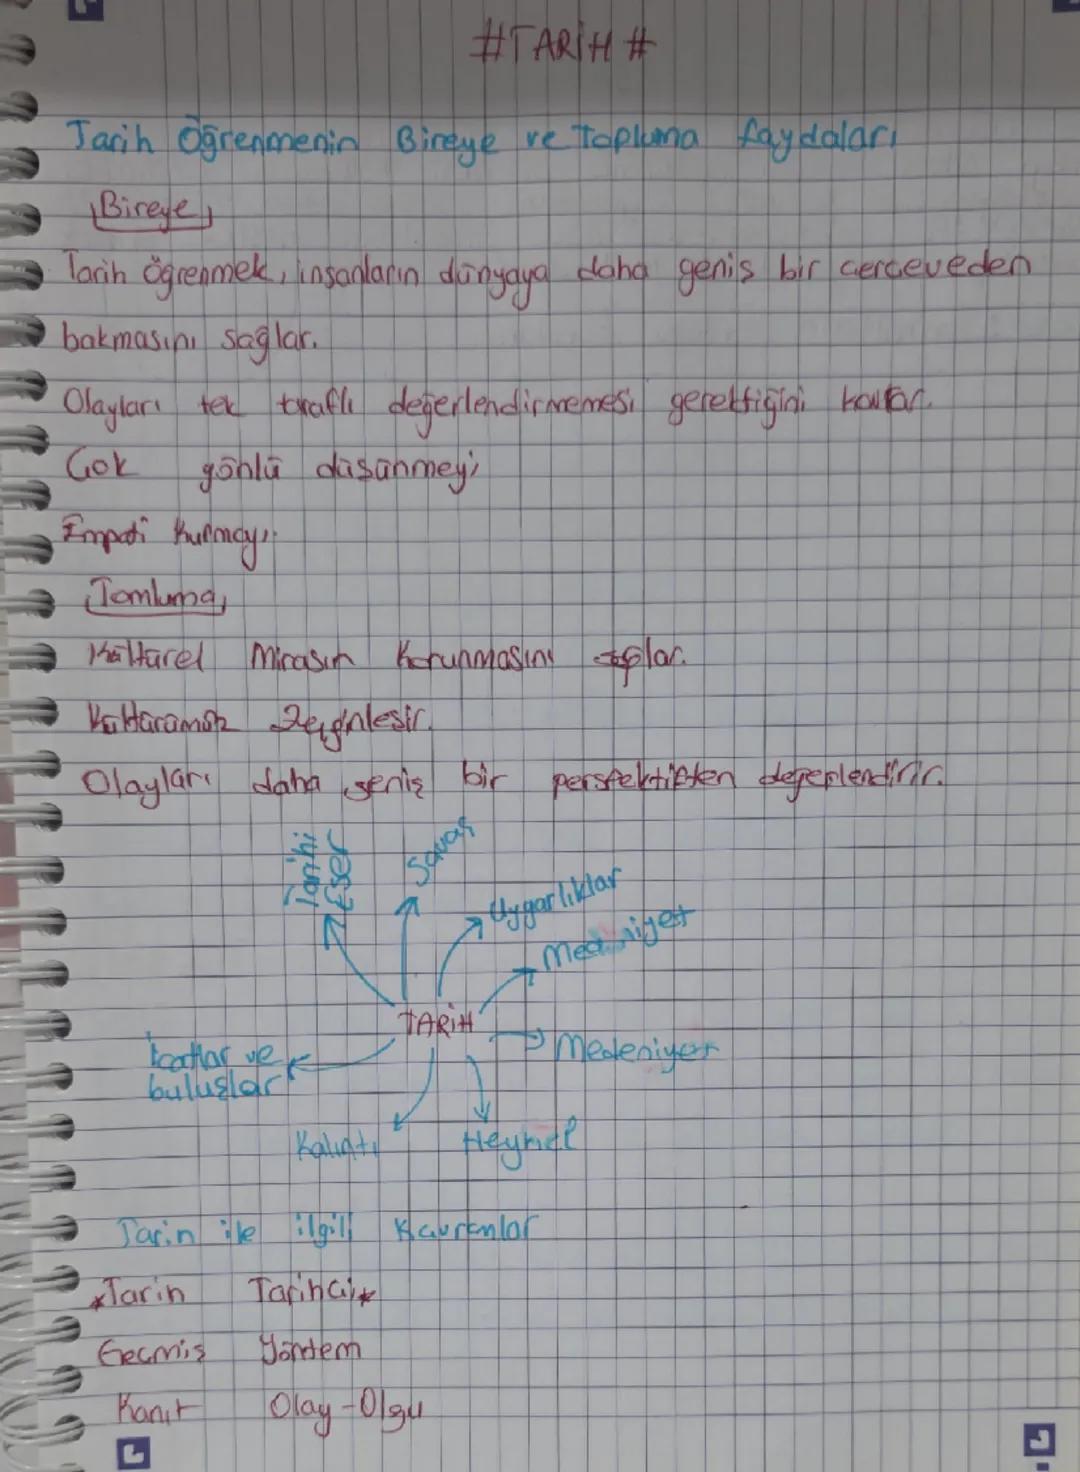 #TARİH #
Tarih Öğrenmenin Bireye ve Topluma faydaları
Bireye
Tarih öğrenmek, insanların dünyaya daha geniş bir çerçeveden
bakmasını sağlar.
Olayları tek taraflı değerlendirmemesi gerektiğini
Çok yönlü düşünmeyi
Empati kurmayı
Tomluma
Kültürel Mirasın Korunmasını sağlar.
Kültürümüz Zenginleşir.
Olayları daha geniş bir perspektiften değerlendirir.
Tarihi
Eser
Savaş
Uygarlıklar
Medeniyet
TARİH
Medeniyet
İcatlar ve
buluşlar
Kalıntı
Heykel
Tarih ile ilgili Kavramlar
*Tarih Tarihçi*
Geçmiş Yöntem
Kanıt Olay-Olgu